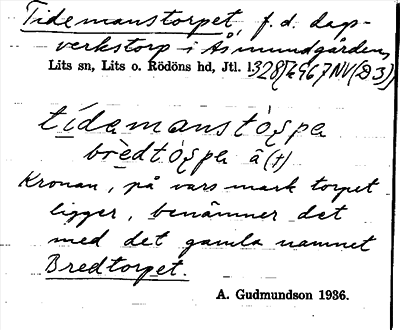 Tidemanstorpet, f.d. dags-
verkstorp i Åsmundgården,
Lits sn, Lits o. Rödöns hd, Jtl.
tídemanstȯrpa
brèdtȯrpa â (t)
Kronan, på vars mark torpet
ligger, benämner det
med det gamla namnet
Bredtorpet.
A. Gudmundson 1936.